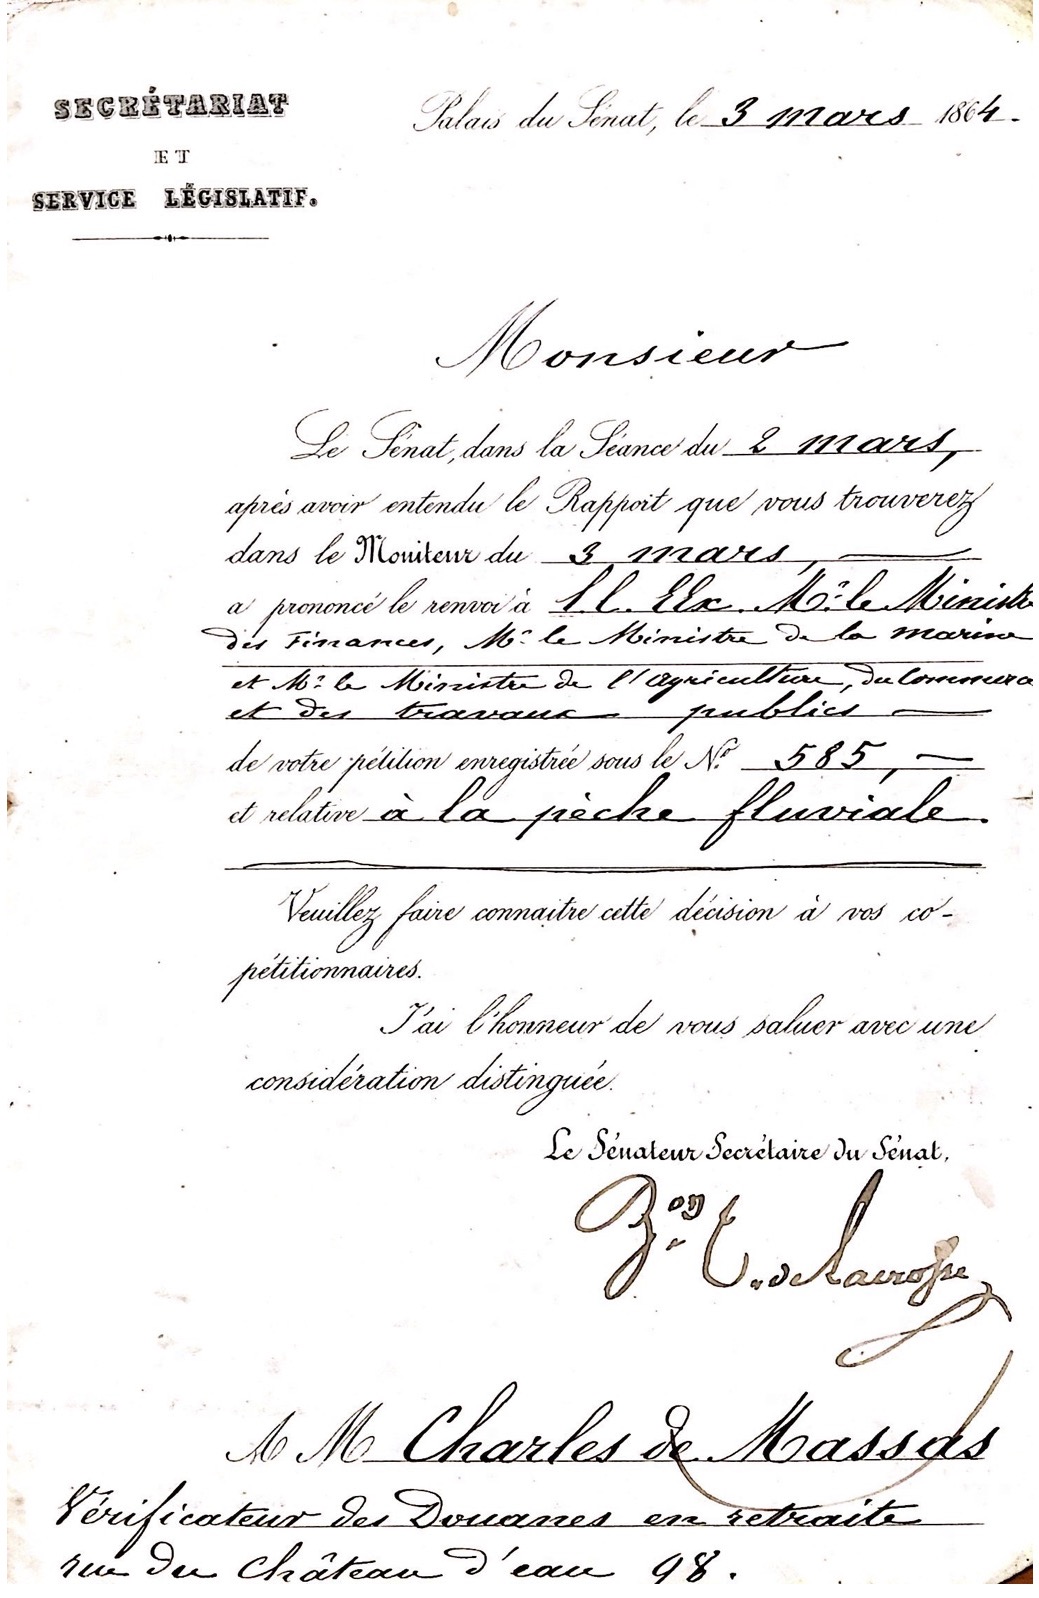 SECRÉTARIAT
ET
SERVICE LÉGISLATIF.
Palais du Sénat, le 3 mars 1864.
Monsieur
Le Sénat, dans la Séance du 2 mars,
après avoir entendu le Rapport que vous trouverez
dans le Moniteur du 3 mars,
a prononcé le renvoi à LL. EEx. Mr. le Ministre
des Finances, Mr. le Ministre de la marine
et Mr. le Ministre de l'agriculture, du Commerce
et des travaux publics
de votre pétition enregistrée sous le No. 585,
et relative à la pèche fluviale.
Veuillez faire connaitre cette décision à vos co-
pétitionnaires.
J'ai l'honneur de vous saluer avec une
considération distinguée.
Le Sénateur Secrétaire du Sénat,
Bon T. de Lacrosse
A M Charles de Massas
Vérificateur des Douanes en retraite
rue du Château d'eau 98.